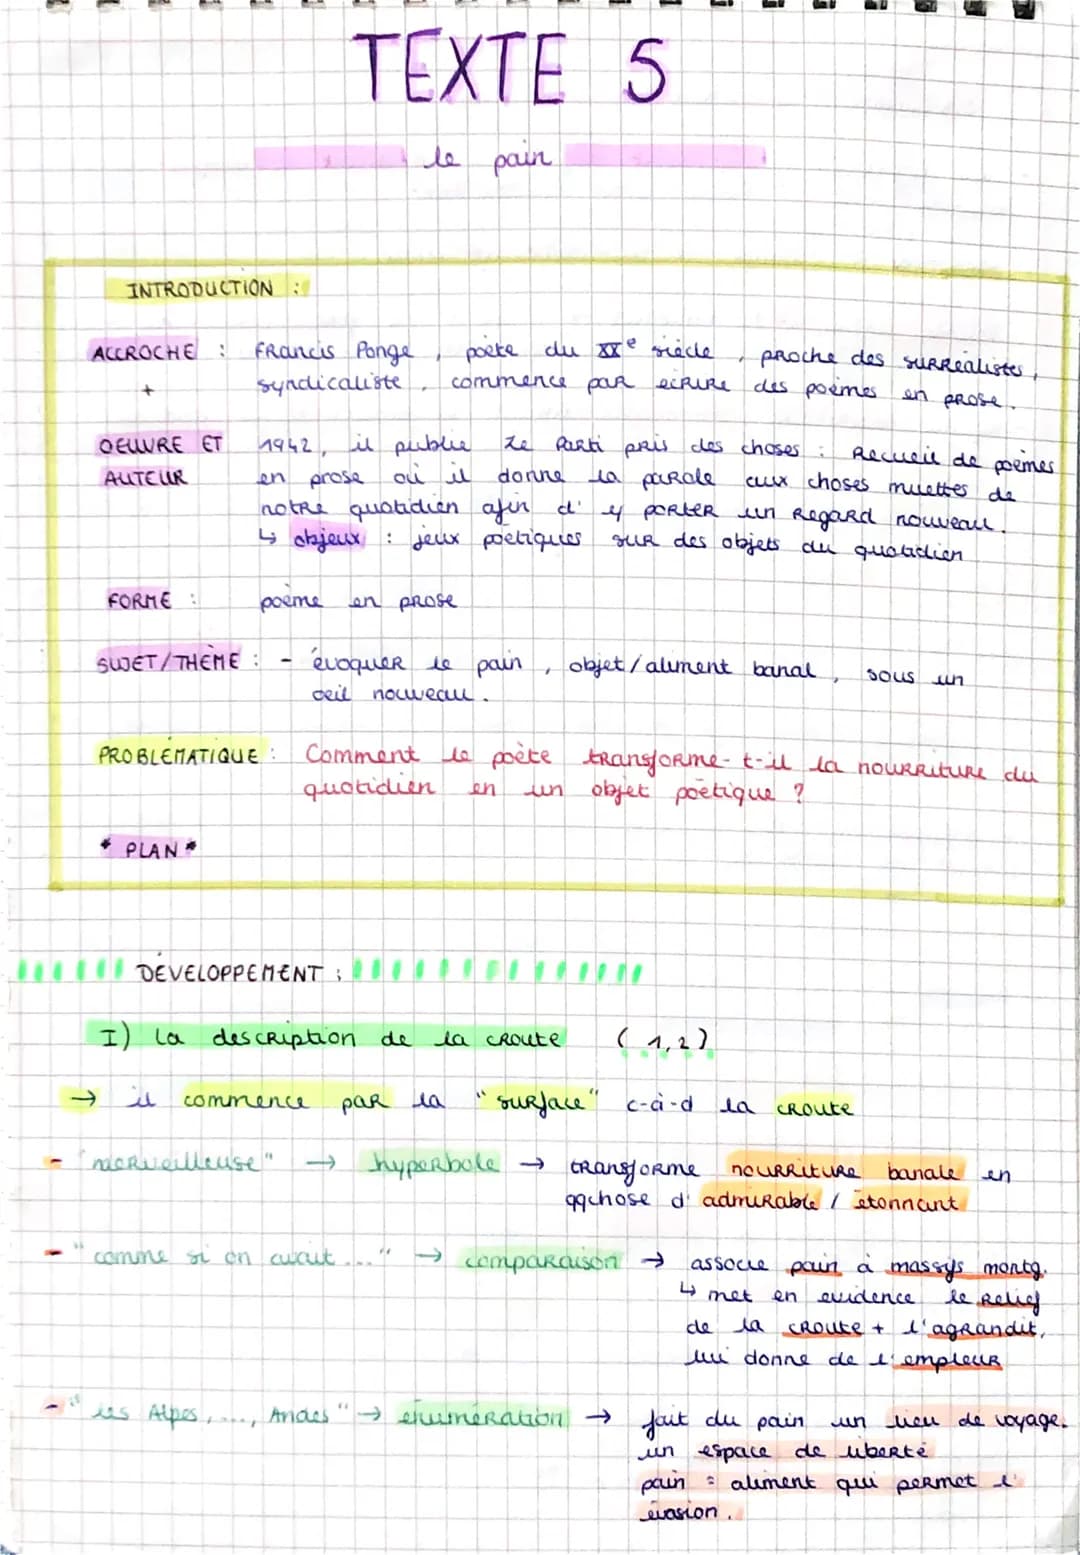 TEXTE 5
le pain
INTRODUCTION :
ACCROCHE : Francis Ponge, poète du XXe siècle, proche des surréalistes,
+ syndicaliste, commence par écrire des poèmes en prose.
OEUVRE ET 1942, il publie Le Parti pris des choses : Recueil de poèmes
AUTEUR en prose où il donne la parole aux choses muettes de
notre quotidien afin d'y porter un regard nouveau.
↳ objeux : jeux poétiques sur des objets du quotidien
FORME : poème en prose
SUJET/THÈME : - évoquer le pain, objet/aliment banal, sous un
oeil nouveau.
PROBLÉMATIQUE : Comment le poète transforme-t-il la nourriture du
quotidien en un objet poétique ?
* PLAN *
DÉVELOPPEMENT :
I) La description de la croute (1,2)
→ il commence par la "surface" c-à-d la croute
- "merveilleuse" → hyperbole → transforme nourriture banale en
qqchose d'admirable / étonnant
- "comme si on avait ..." → comparaison → associe pain à massifs montg.
↳ met en evidence le relief
de la croute + l'agrandit,
lui donne de l'empleur
- "les Alpes, ..., Andes" → énumération → fait du pain un lieu de voyage.
un espace de liberté
pain = aliment qui permet l'
évasion.